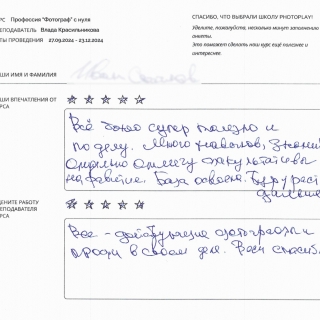 РС Профессия "Фотограф" с нуля
ПОДАВАТЕЛЬ Влада Красильникова
ТЫ ПРОВЕДЕНИЯ 27.09.2024 - 23.12.2024
СПАСИБО, ЧТО ВЫБРАЛИ ШКОЛУ PHOTOPLAY!
Уделите, пожалуйста, несколько минут заполнению
анкеты.
Это поможет сделать наш курс ещё полезнее и
интереснее.
ШИ ИМЯ И ФАМИЛИЯ
ШИ ВПЕЧАТЛЕНИЯ ОТ
РСА
Всё было супер полезно и
по делу. Много навыков,
Отдельно отмечу факультативы
на развитие. База освоена. Буду
дальше
ЕНИТЕ РАБОТУ
ЕПОДАВАТЕЛЯ
РСА
Все - действующие фотографы и
профи в своем деле. Всем спасибо